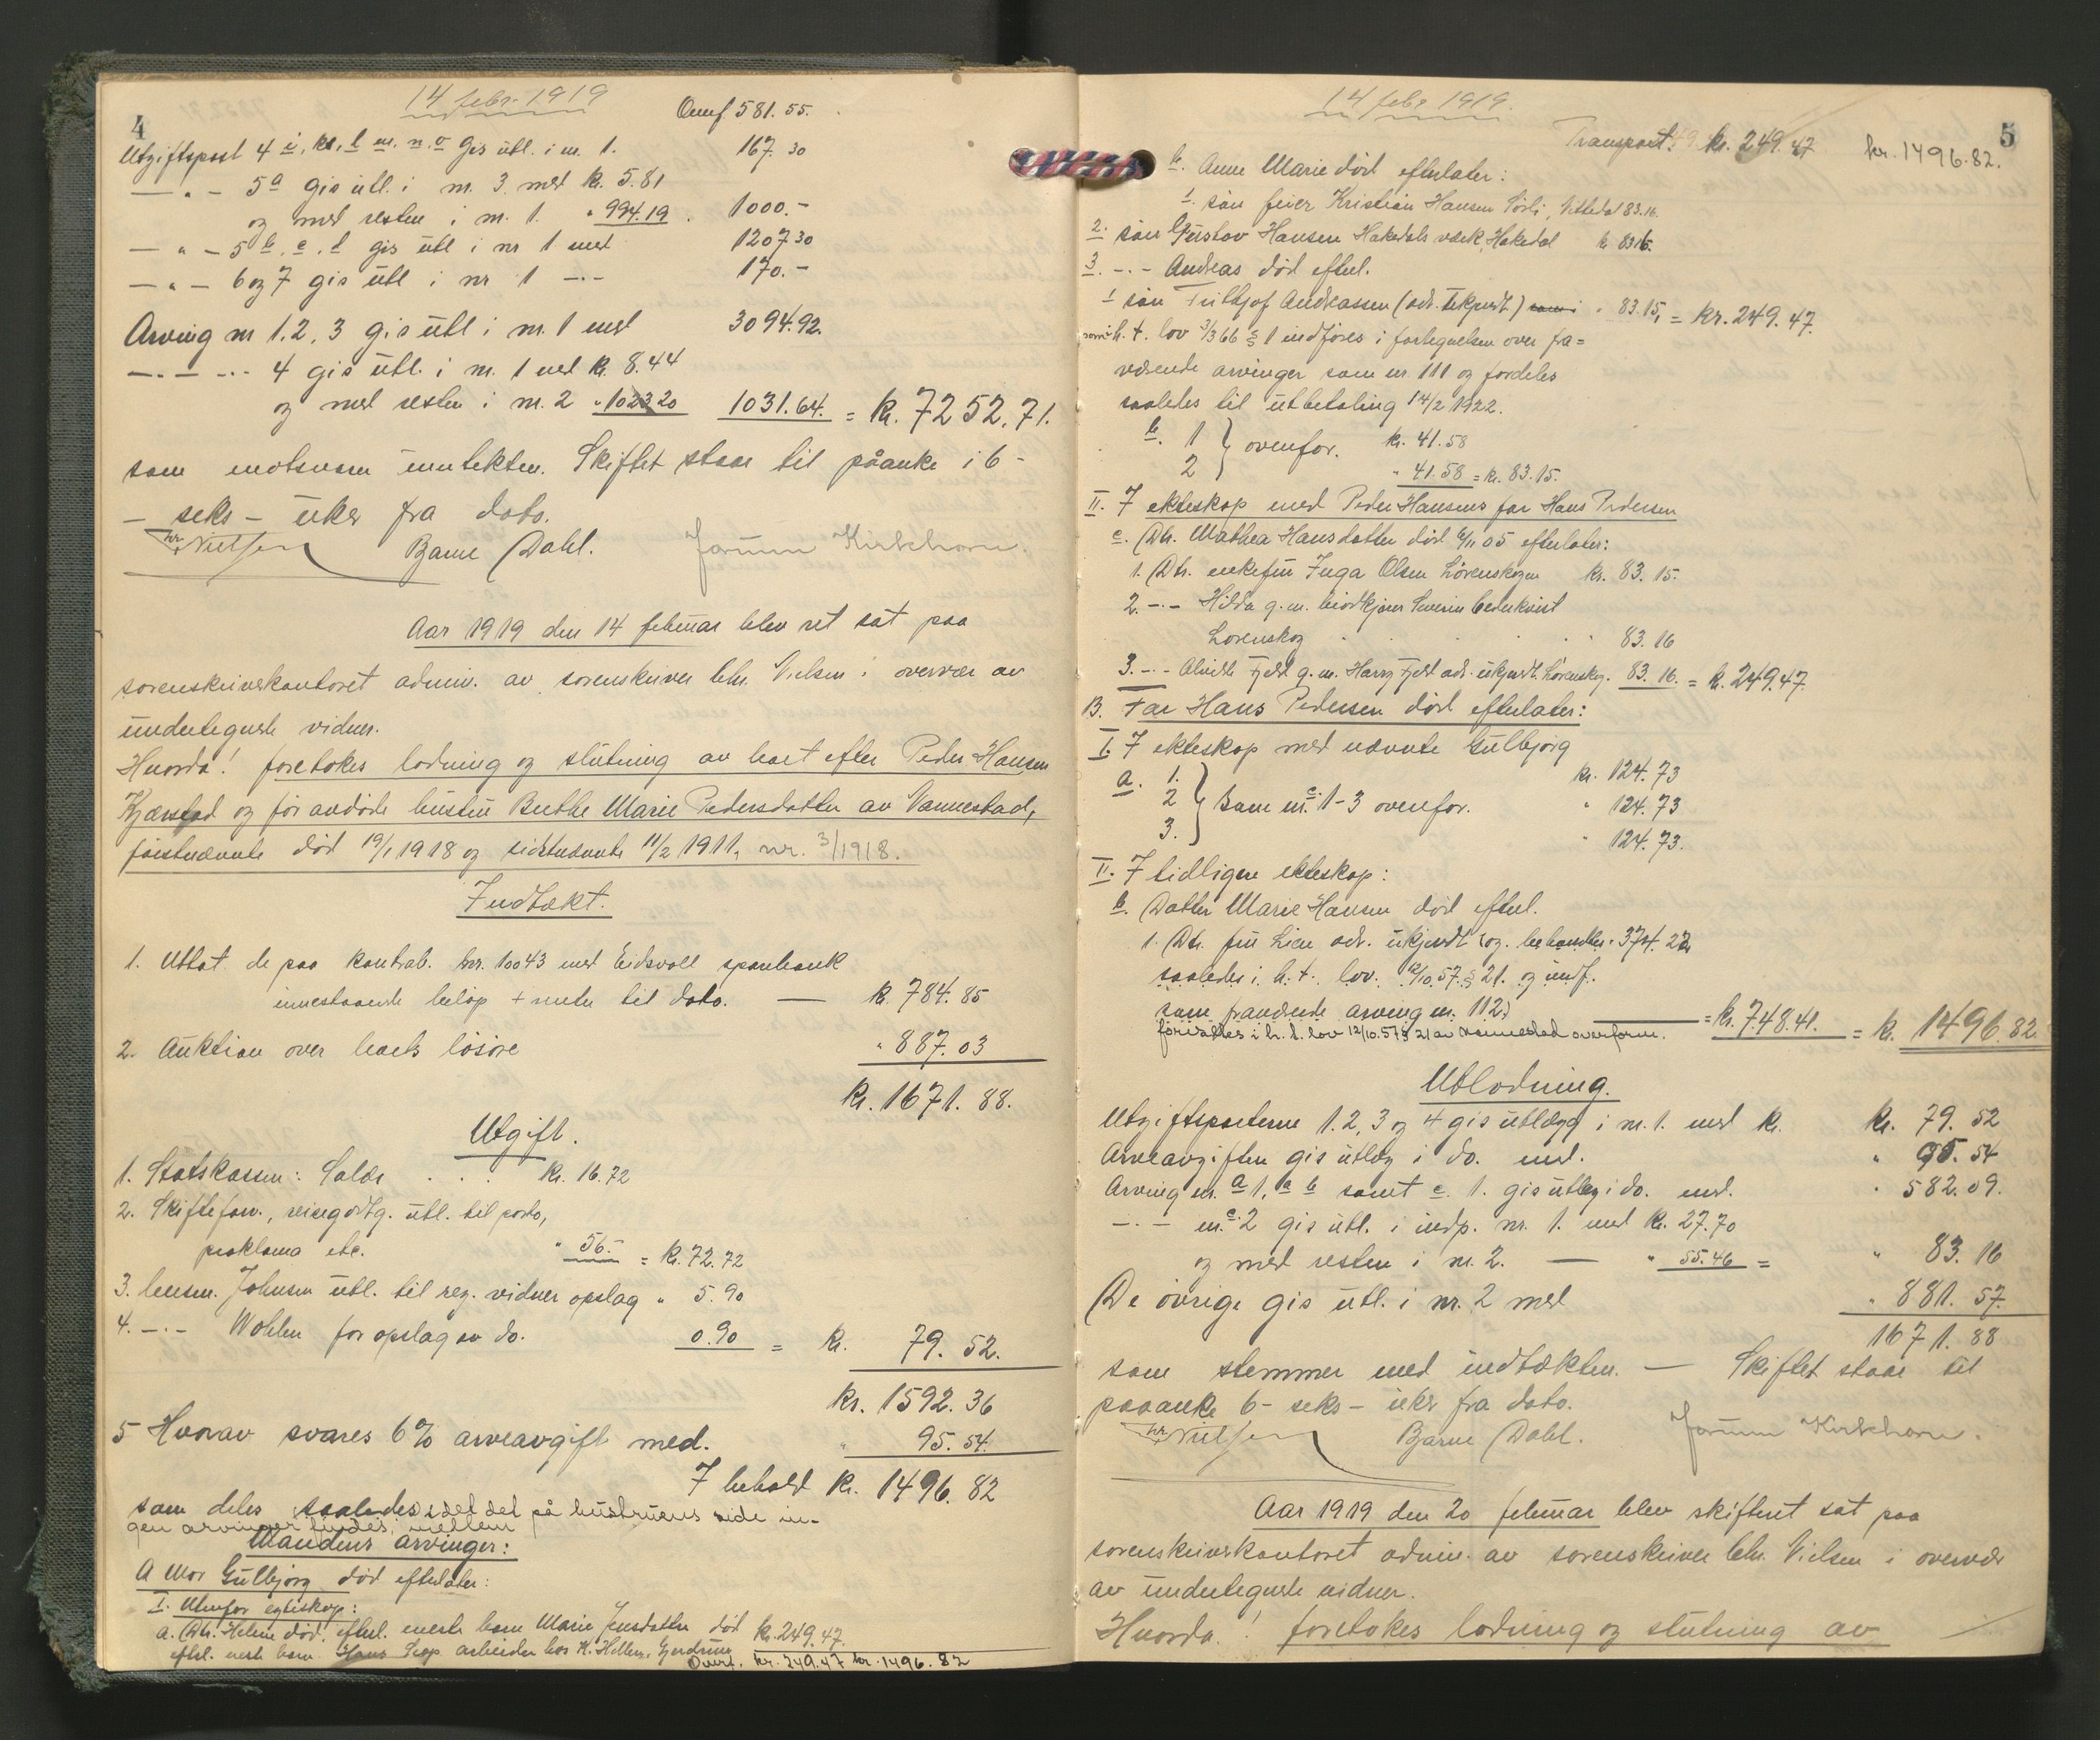 14 febr. 1919
4
Overf 581.55.
Utgiftspost 4 i, k, l m. n. o gis utl. i nr. 1. 167.30
— " — 5 a gis utl. i nr. 3 med kr. 5.81
og med resten i nr. 1. " 994.19. 1000.-
— " — 5 b. c. d gis utl i nr 1 med 1207.30
— " — 6 og 7 gis utl i nr 1 —"— 170.-
Arving nr 1, 2, 3 gis utl i nr. 1 med 3094.92.
—"— —"— 4 gis utl. i nr. 1 med kr. 8.44
og med resten i nr. 2 " 1023.20 1031.64. = kr. 7252.71.
som motsvarer inntekten. Skiftet staar til påanke i 6 -
— seks — uker fra dato.
Chr. Nielsen Bjarne Dahl. Jorunn Kirkhorn.
Aar 1919 den 14 februar blev ret sat paa
sorenskriverkontoret admin. av sorenskriver Chr. Nielsen i overvær av
undertegnede vidner.
Hvorda! foretokes lodning og slutning av boet efter Peder Hansen
Kjærstad og før avdøde hustru Berthe Marie Pedersdatter av Nannestad,
førstnævnte død 19/1 1918 og sidstnævnte 11/2 1911, nr. 3/1918.
Indtækt.
1. Uttat de paa kontrab. nr. 10043 med Eidsvoll sparebank
innestaaende beløp + renter til dato. — kr. 784.85
2. Auktion over boets løsøre " 887.03
kr. 1671.88.
Utgift.
1. Statskassen: Saldo . . . kr. 16.72
2. Skifteforv., reisegodtg. utl. til porto,
proklama etc. " 56.- = kr. 72.72
3. lensm. Johnsen utl. til reg. vidner opslag " 5.90
4. —"— Wohlen for opslag av do. 0.90 = kr. 79.52.
kr. 1592.36
5 Hvorav svares 6% arveavgift med. " 95.54.
I behold kr. 1496.82
som deles saaledes, idet det på hustruens side in-
gen arvinger findes, mellem
Mandens arvinger:
A Mor Gulbjørg død efterlater:
I. Utenfor egteskap:
a. Dtr. Helene død, efterl. eneste barn Marie Jensdatter død kr. 249.47.
efterl. eneste barn Hans arbeider hos K. Hellen, Gjerdrum
Overf. kr. 249.47 kr. 1496.82
14 febr 1919.
5
Transport: kr. 249.47 kr. 1496.82.
b. Anne Marie død efterlater:
1. søn feier Kristian Hansen Sørli, Nittedal 83.16.
2. søn Gustav Hansen Hakedals værk, Hakedal kr 83.16.
3. —"— Andreas død efterl.
1 søn Frithjof Andreassen (adr. ukjendt) " 83.15, = kr. 249.47.
som i h. t. lov 3/3 66 § 1 indføres i fortegnelsen over fra=
værende arvinger som nr. 111 og fordeles
saaledes til utbetaling 14/2 1922.
b. 1 } ovenfor. kr. 41.58
2 " 41.58 = kr. 83.15.
II. I ekteskap med Peder Hansens far Hans Pedersen
c. Dtr. Mathea Hansdatter død 6/11 05 efterlater:
1. Dtr. enkefru Inga Olsen Lørenskogen kr. 83.15.
2. —"— Hilda g. m. Severin Cederkvist
Lørenskog " 83.16
3. —"— Fjeld g. m. Harry Fjeld adr. ukjendt. Lørenskog. 83.16. = kr. 249.47.
B. Far Hans Pedersen død efterlater:
I. I ekteskap med nævnte Gulbjørg
a. 1. kr. 124.73
2 } Samme nr. c. 1-3 ovenfor. " 124.73
3. " 124.73.
II. I tidligere ekteskap:
b. Datter Marie Hansen død efterl.
1. Dtr. fru Lien adr. ukjendt og behandles " 374.22
saaledes i h. t. lov. 12/10 57 § 21. og indf.
som fraværende arving nr. 112.
forvaltes i h. t. lov 12/10.57 § 21 av Nannestad overform. — = kr. 748.41. = kr. 1496.82.
Utlodning.
Utgiftsposterne 1. 2, 3 og 4 gis utlægg i nr. 1. med kr. kr. 79.52
Arveavgiften gis utlæg i do. med. " 95.54
Arving nr. a 1, a b samt c. 1. gis utlæg i do. med. " 582.09.
—"— nr. c. 2 gis utl. i indp. nr. 1. med kr. 27.70
og med resten i nr. 2. — " 55.46 = " 83.16
De øvrige gis utl. i nr. 2 med " 881.57.
1671.88
som stemmer med indtækten. — Skiftet staar til
paaanke 6 - seks - uker fra dato.
Chr. Nielsen Bjarne Dahl. Jorunn Kirkhorn.
Aar 1919 den 20 februar blev skifteret sat paa
sorenskriverkontoret admin. av sorenskriver Chr. Nielsen i overvær
av undertegnede vidner.
Hvorda! foretokes lodning og slutning av